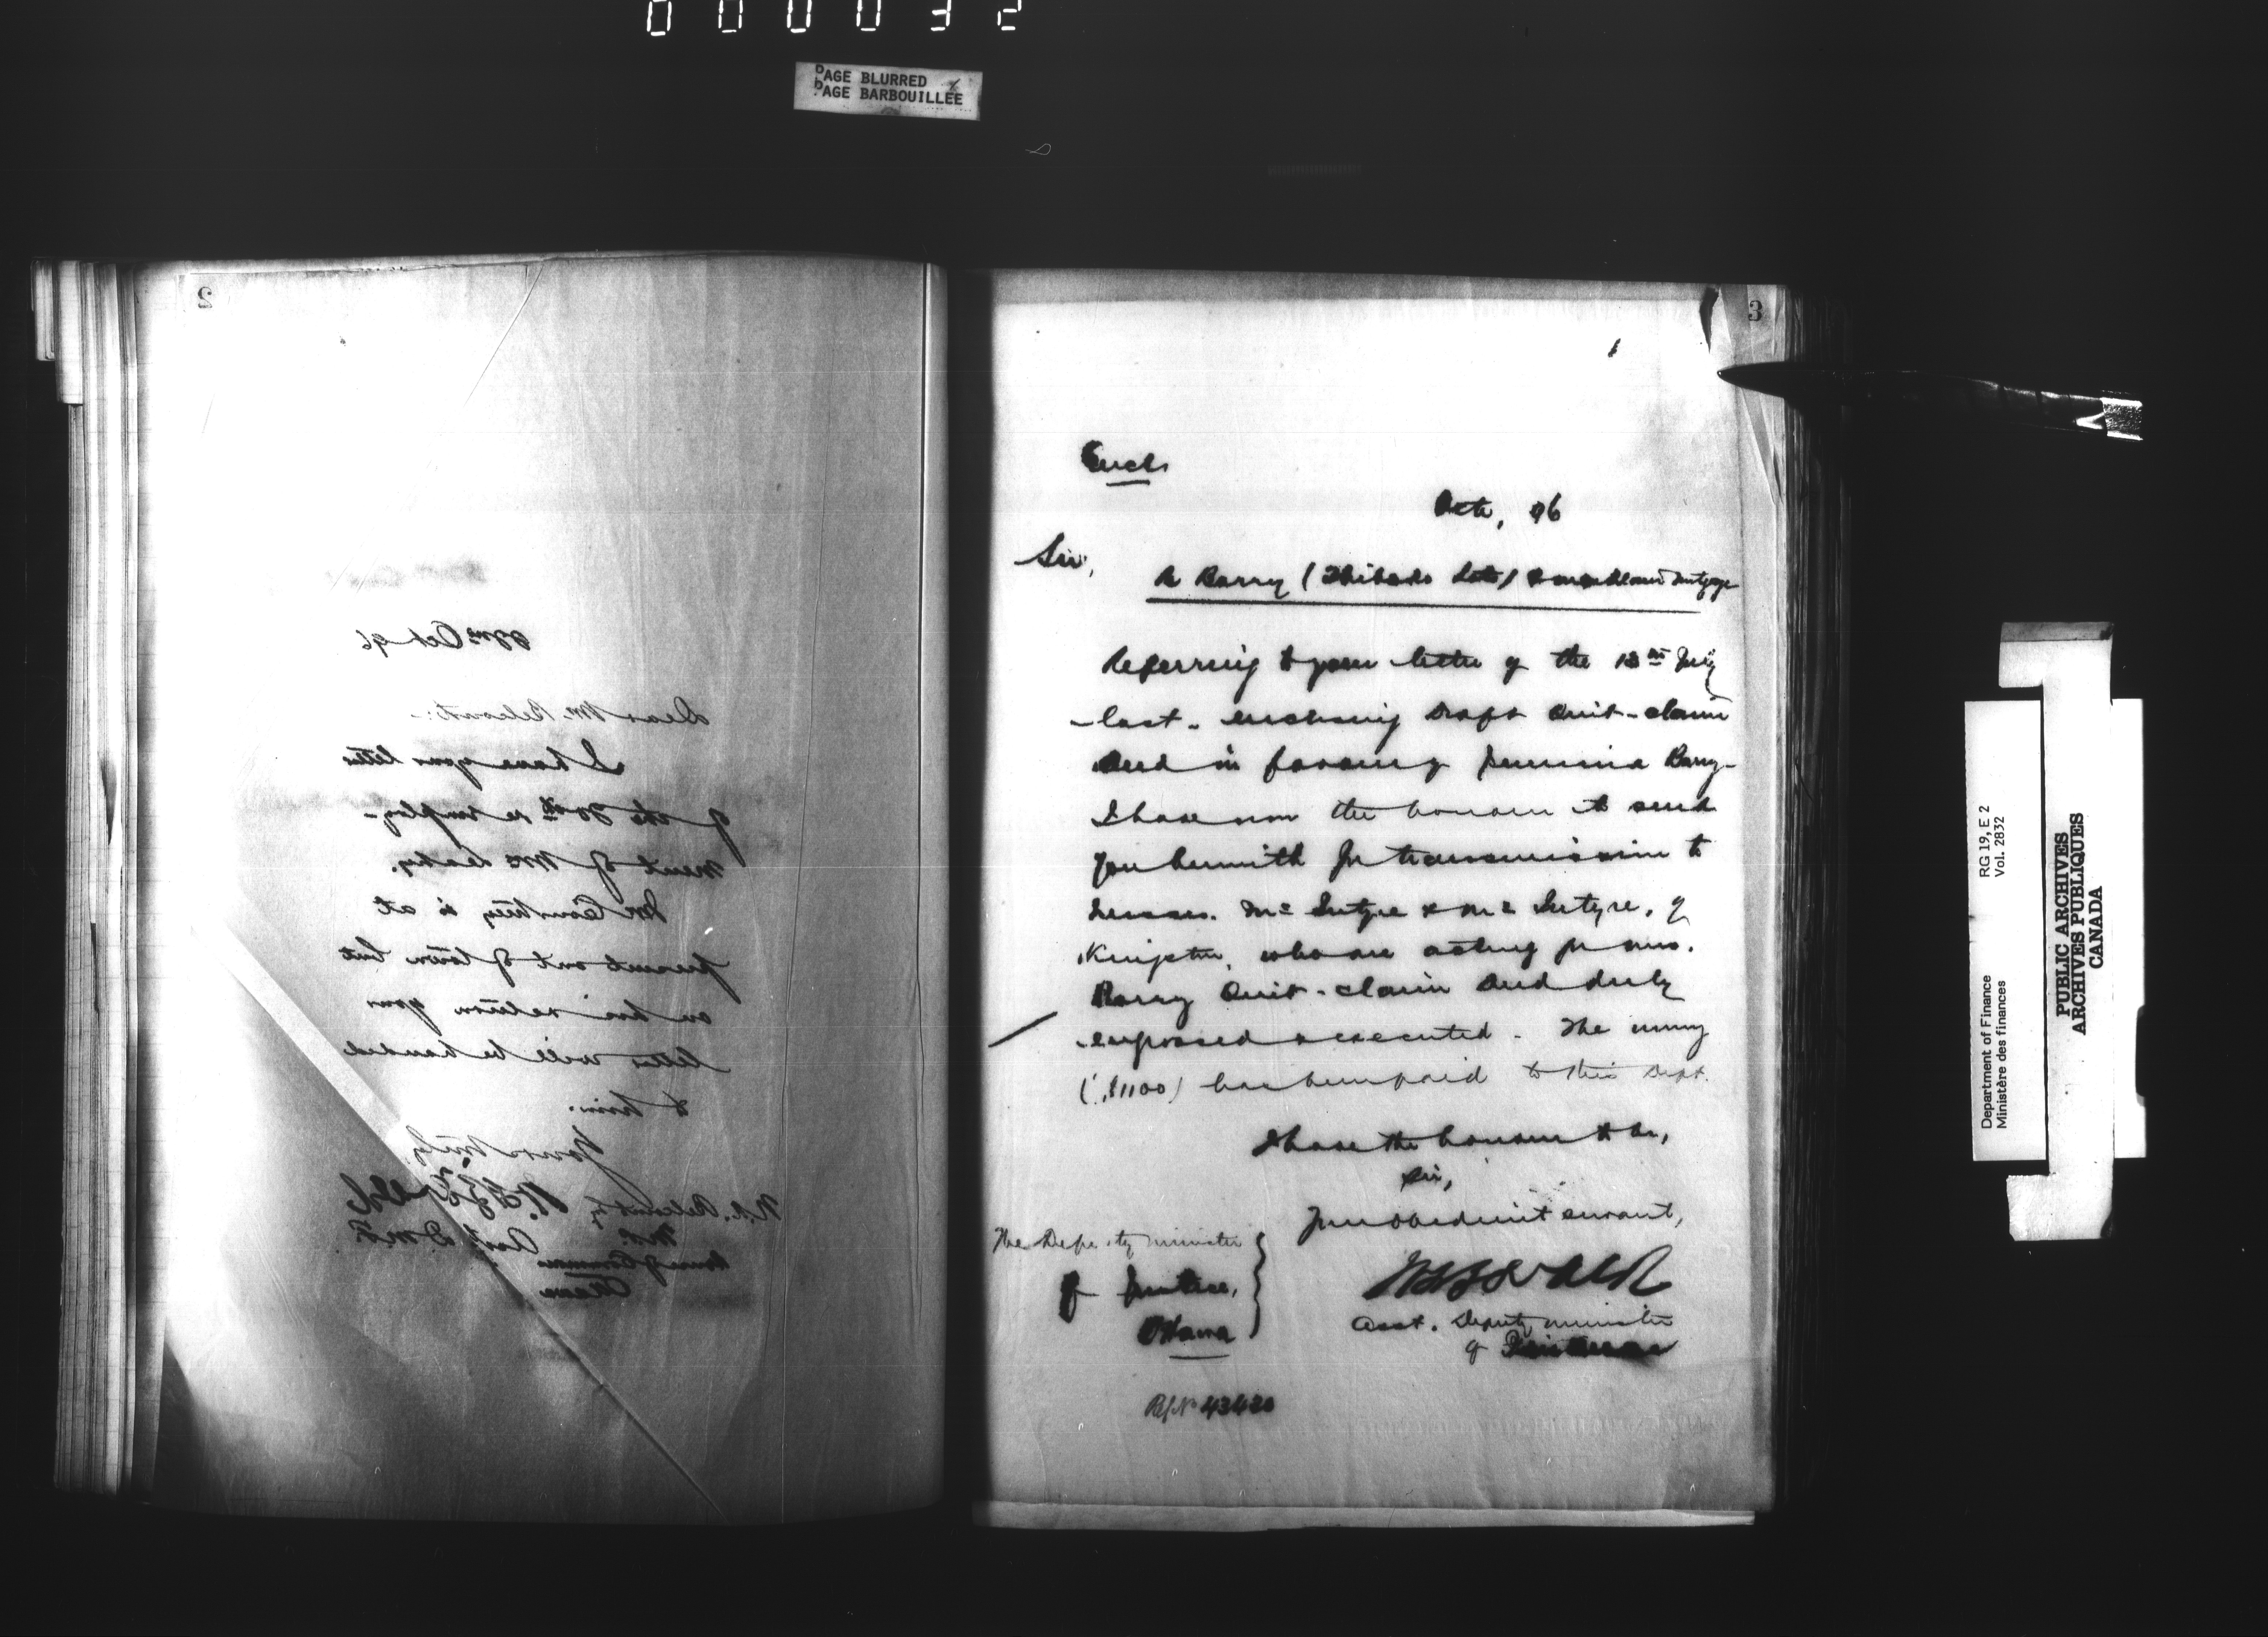 000032
PAGE BLURRED
PAGE BARBOUILLEE
2
22nd Oct 96
Dear Mr. Belcourt:-
I have your letter
of the 20th re employ-
ment of Mrs Leahy.
Mr Courtney is at
present out of town but
on his return your
letter will be handed
to him.
Yours truly,
N.A. Belcourt Esq
M.P.
House of Commons
Ottawa
Asst. D.M.F.
3
Encls
Oct, 96
Sir,
Re Barry ( Lots)
Referring to your letter of the 13th July
last - enclosing draft Quit-claim
Deed in favour of Jemima Barry-
I have now the honour to send
you herewith for transmission to
Messrs. McIntyre & McIntyre, of
Kingston, who are acting for Mrs.
Barry Quit-claim Deed duly
engrossed & executed - The money
($1100) has been paid to this Dept.
I have the honour to be,
Sir,
Your obedient servant,
Asst. Deputy Minister
of Finance
The Deputy Minister
of Justice,
Ottawa
Ref No 43420
Department of Finance
Ministère des finances
RG 19, E 2
Vol. 2832
PUBLIC ARCHIVES
ARCHIVES PUBLIQUES
CANADA